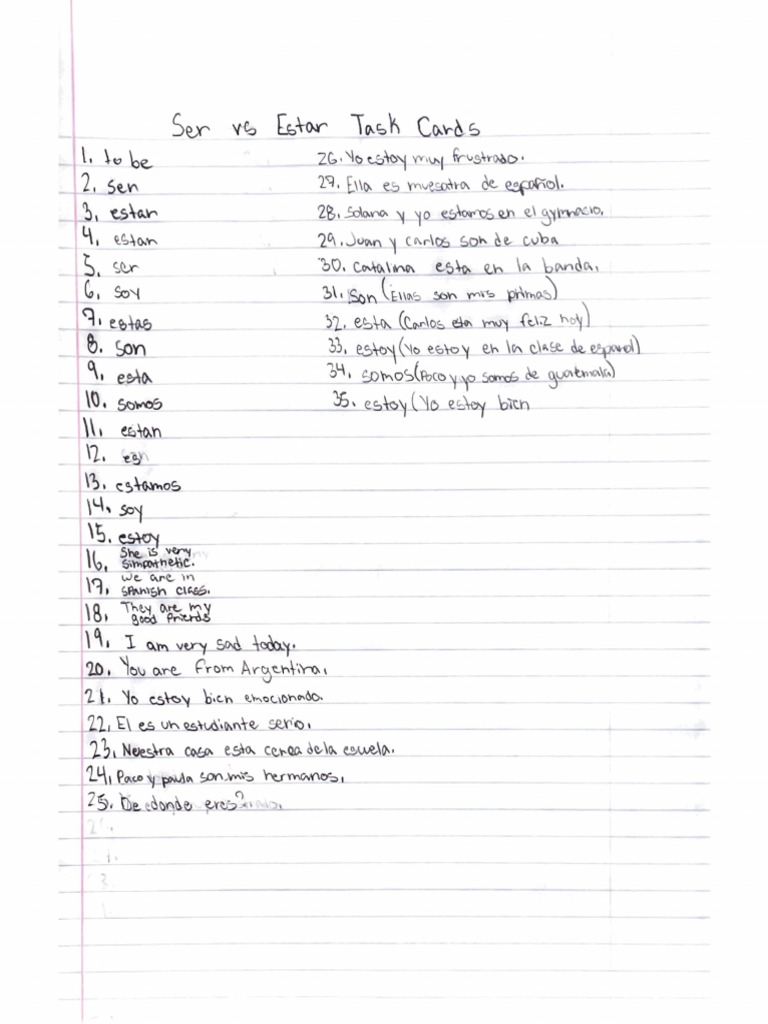 Ser vs Estar Task Cards
1. to be
2. ser
3. estar
4. estar
5. ser
6. soy
7. estas
8. son
9. esta
10. somos
11. estan
12. es
13. estamos
14. soy
15. estoy
16. She is very
simpathetic.
17. we are in
spanish class.
18. They are my
good friends
19. I am very sad today.
20. You are from Argentina.
21. Yo estoy bien emocionado.
22. El es un estudiante serio.
23. Nuestra casa esta cerca de la esuela.
24. Paco y paula son mis hermanos.
25. De donde eres?
26. Yo estoy muy frustrado.
27. Ella es muesatra de español.
28. Solana y yo estamos en el gymnacio.
29. Juan y carlos son de cuba
30. Catalina esta en la banda.
31. son (Ellas son mis primas)
32. esta (Carlos esta muy feliz hoy)
33. estoy (Yo estoy en la clase de espanol)
34. somos (Paco y yo somos de guatemala)
35. estoy (Yo estoy bien